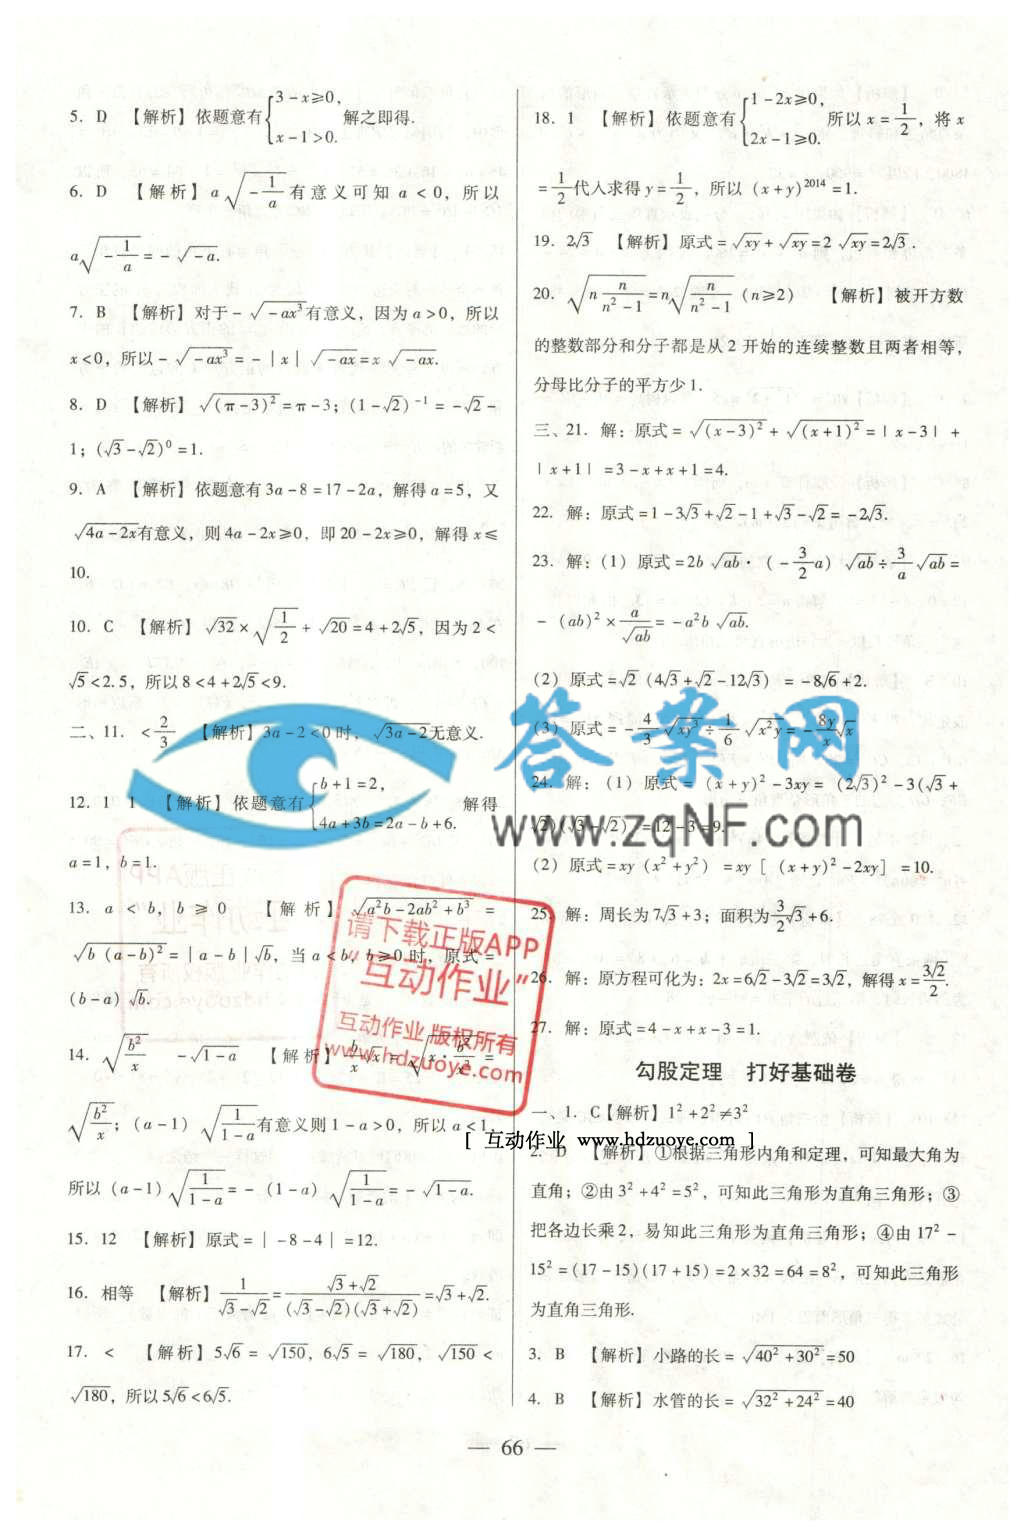 5. D 【解析】依题意有{3-x≥0, x-1>0. 解之即得.
6. D 【解析】a√(-1/a)有意义可知 a<0，所以
a√(-1/a)=-√(-a).
7. B 【解析】对于-√(-ax³)有意义，因为a>0，所以
x<0，所以-√(-ax³)=-|x|√(-ax)=x√(-ax).
8. D 【解析】√((π-3)²)=π-3；(1-√2)⁻¹=-√2-
1；(√3-√2)⁰=1.
9. A 【解析】依题意有3a-8=17-2a，解得a=5，又
√(4a-2x)有意义，则4a-2x≥0，即20-2x≥0，解得x≤
10.
10. C 【解析】√32×√(1/2)+√20=4+2√5，因为2<
√5<2.5，所以8<4+2√5<9.
二、11. <2/3 【解析】3a-2<0时，√(3a-2)无意义.
12. 1 1 【解析】依题意有{b+1=2, 4a+3b=2a-b+6. 解得
a=1，b=1.
13. a<b，b≥0 【解析】√(a²b-2ab²+b³)=
√(b(a-b)²)=|a-b|√b，当a<b，b≥0时，原式=
(b-a)√b.
14. √(b²/x) -√(1-a) 【解析】b/x√x=√(x·b²/x²)=
√(b²/x)；(a-1)√(1/(1-a))有意义则1-a>0，所以a<1，
所以(a-1)√(1/(1-a))=-(1-a)√(1/(1-a))=-√(1-a).
15. 12 【解析】原式=|-8-4|=12.
16. 相等 【解析】1/(√3-√2)=(√3+√2)/((√3-√2)(√3+√2))=√3+√2.
17. < 【解析】5√6=√150，6√5=√180，√150<
√180，所以5√6<6√5.
18. 1 【解析】依题意有{1-2x≥0, 2x-1≥0. 所以x=1/2，将x
=1/2代人求得y=1/2，所以(x+y)²⁰¹⁴=1.
19. 2√3 【解析】原式=√xy+√xy=2√xy=2√3.
20. √(n n/(n²-1))=n√(n/(n²-1)) (n≥2) 【解析】被开方数
的整数部分和分子都是从2开始的连续整数且两者相等，
分母比分子的平方少1.
三、21. 解：原式=√((x-3)²)+√((x+1)²)=|x-3|+
|x+1|=3-x+x+1=4.
22. 解：原式=1-3√3+√2-1+√3-√2=-2√3.
23. 解：(1) 原式=2b√ab·(-3/2a)√ab÷3/a√ab=
-(ab)²×a/√ab=-a²b√ab.
(2) 原式=√2(4√3+√2-12√3)=-8√6+2.
(3) 原式=-4/3√(xy³)÷1/6√(x²y)=-8y/x√x
24. 解：(1) 原式=(x+y)²-3xy=(2√3)²-3(√3+
√2)(√3-√2)=12-3=9.
(2) 原式=xy(x²+y²)=xy[(x+y)²-2xy]=10.
25. 解：周长为7√3+3；面积为3/2√3+6.
26. 解：原方程可化为：2x=6√2-3√2=3√2，解得x=3√2/2.
27. 解：原式=4-x+x-3=1.
勾股定理 打好基础卷
一、1. C【解析】1²+2²≠3²
2. D 【解析】①根据三角形内角和定理，可知最大角为
直角；②由3²+4²=5²，可知此三角形为直角三角形；③
把各边长乘2，易知此三角形为直角三角形；④由17²-
15²=(17-15)(17+15)=2×32=64=8²，可知此三角形
为直角三角形.
3. B 【解析】小路的长=√(40²+30²)=50
4. B 【解析】水管的长=√(32²+24²)=40
— 66 —
答案网
www.zqNF.com
请下载正版APP
“互动作业”
互动作业 版权所有
www.hdzuoye.com
[ 互动作业 www.hdzuoye.com ]